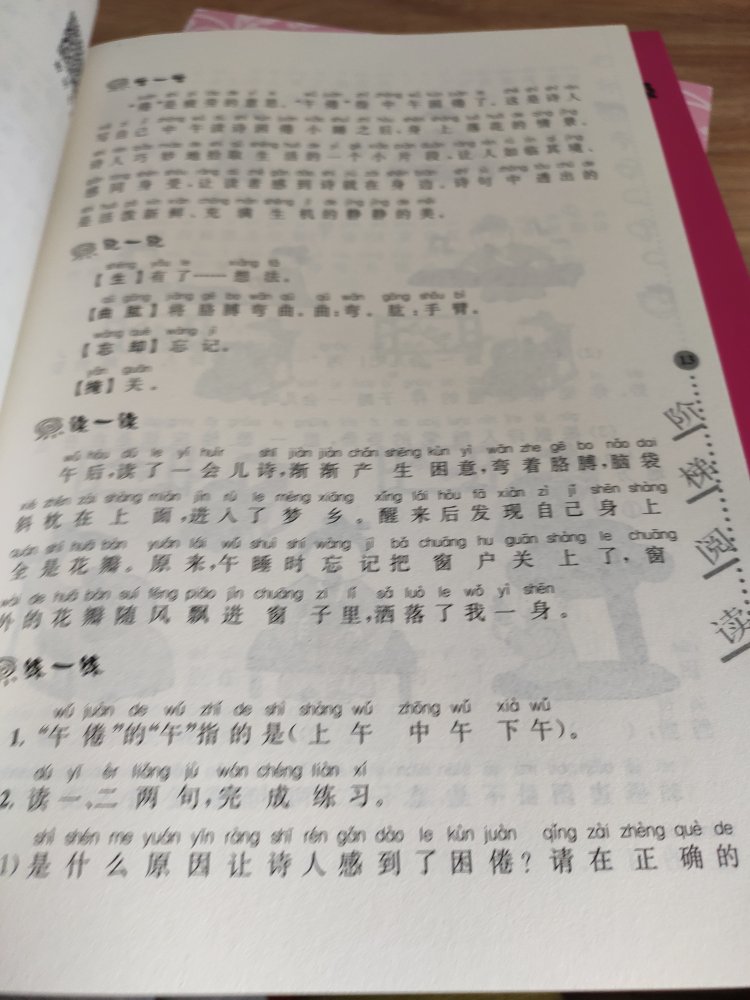 学一学
“倦”是疲劳的意思。“午倦”指中午困倦了。这是诗人
写自己中午读诗困倦小睡之后,身上落花的情景。
诗人巧妙地拾取生活的一个小片段,让人如临其境、
感同身受,让读者感到诗就在身边。诗句中透出的
是活泼新鲜、充满生机的静静的美。
说一说
shēng yǒu le xiǎng fǎ
【生】有了……想法。
qū gōng jiāng gē bo wān qū qū wān gōng shǒu bì
【曲肱】将胳膊弯曲。曲:弯。肱:手臂。
wàng què wàng jì
【忘却】忘记。
yǎn guān
【掩】关。
读一读
wǔ hòu dú le yí huìr shī jiàn jiàn chǎn shēng kùn yì wān zhe gē bo nǎo dai
午后,读了一会儿诗,渐渐产生困意,弯着胳膊,脑袋
xié zhěn zài shàng miàn jìn rù le mèng xiāng xǐng lái hòu fā xiàn zì jǐ shēn shàng
斜枕在上面,进入了梦乡。醒来后发现自己身上
quán shì huā bàn yuán lái wǔ shuì shí wàng jì bǎ chuāng hu guān shàng le chuāng
全是花瓣。原来,午睡时忘记把窗户关上了,窗
wài de huā bàn suí fēng piāo jìn chuāng zi lǐ sǎ luò le wǒ yì shēn
外的花瓣随风飘进窗子里,洒落了我一身。
练一练
wǔ juàn de wǔ zhǐ de shì shàng wǔ zhōng wǔ xià wǔ
1. “午倦”的“午”指的是(上午 中午 下午)。
dú yī èr liǎng jù wán chéng liàn xí
2. 读一、二两句,完成练习。
shì shén me yuán yīn ràng shī rén gǎn dào le kùn juàn qǐng zài zhèng què de
1)是什么原因让诗人感到了困倦?请在正确的
13
阶梯阅读